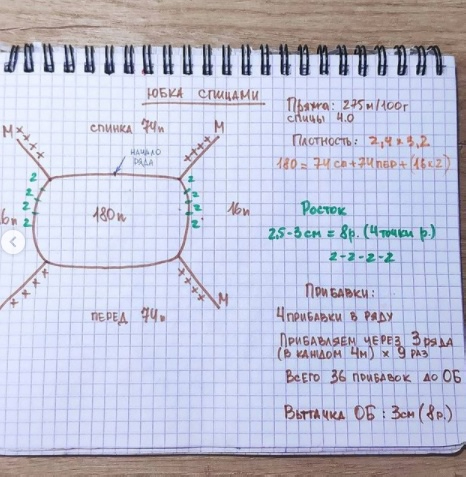 ЮБКА СПИЦАМИ
Пряжа: 275м/100г
спицы 4.0
Плотность: 2,4 х 3,2
180 = 74сп + 74пер + (16х2)
М
СПИНКА 74п
М
НАЧАЛО
РЯДА
2
2
2
2
2
2
2
2
16п
180п
16п
ПЕРЕД 74п
М
Росток
2,5-3см = 8р. (4 точки р.)
2-2-2-2
ПРИБАВКИ:
4 ПРИБАВКИ В РЯДУ
ПРИБАВЛЯЕМ ЧЕРЕЗ 3 РЯДА
(В КАЖДОМ 4М) х 9 РАЗ
ВСЕГО 36 ПРИБАВОК ДО ОБ
ВЫТАЧКА ОБ: 3см (8р.)